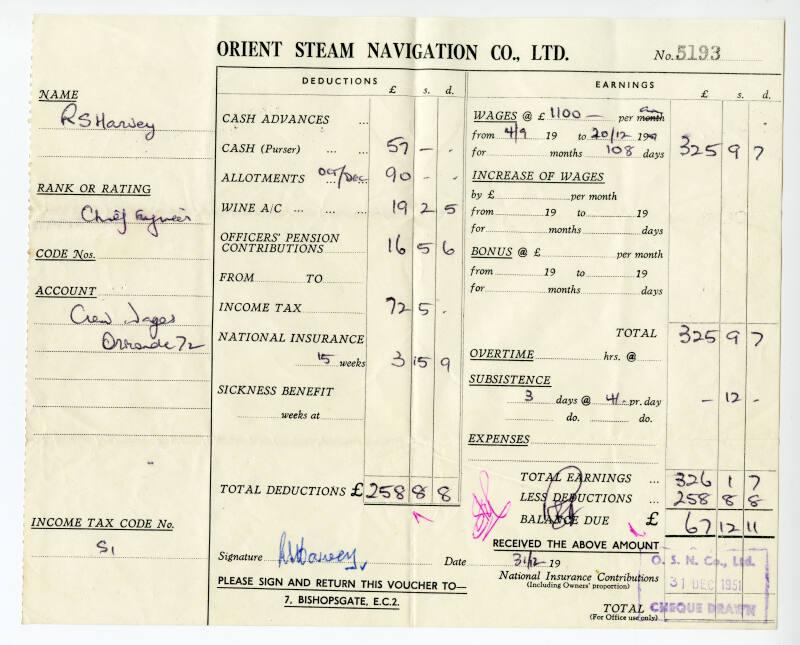 ORIENT STEAM NAVIGATION CO., LTD.
No. 5193
NAME
R S Harvey
RANK OR RATING
Chief Engineer
CODE Nos.
ACCOUNT
Crew Wages
Orronde 72
INCOME TAX CODE No.
S1
DEDUCTIONS
£ s. d.
CASH ADVANCES ...
CASH (Purser) ... ... 57 - -
ALLOTMENTS Oct/Dec 90 - -
WINE A/C ... ... ... 19 2 5
OFFICERS' PENSION
CONTRIBUTIONS 16 5 6
FROM TO
INCOME TAX 72 5 .
NATIONAL INSURANCE
15 weeks 3 15 9
SICKNESS BENEFIT
weeks at
TOTAL DEDUCTIONS £ 258 8 8
Signature R S Harvey
Date 31/12 19
PLEASE SIGN AND RETURN THIS VOUCHER TO—
7, BISHOPSGATE, E.C.2.
EARNINGS
£ s. d.
WAGES @ £ 1100 — per month
from 4/9 19 to 20/12 19
for months 108 days 325 9 7
INCREASE OF WAGES
by £ per month
from 19 to 19
for months days
BONUS @ £ per month
from 19 to 19
for months days
TOTAL 325 9 7
OVERTIME hrs. @
SUBSISTENCE
3 days @ 4/- pr. day - 12 -
do. do.
EXPENSES
TOTAL EARNINGS ... 326 1 7
LESS DEDUCTIONS ... 258 8 8
BALANCE DUE £ 67 12 11
RECEIVED THE ABOVE AMOUNT
National Insurance Contributions
(Including Owners' proportion)
TOTAL
(For Office use only)
O. S. N. Co., Ltd.
31 DEC 1951
CHEQUE DRAWN